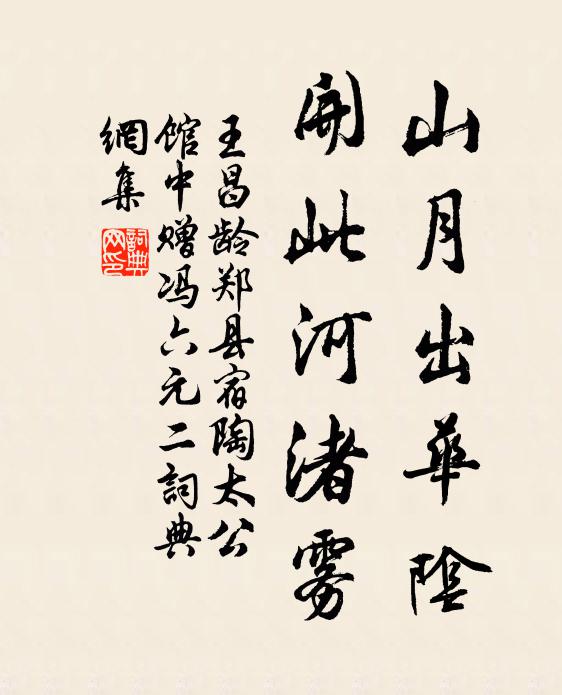 山月出華陰
開此河渚雾
王昌龄郑县宿陶太公
馆中赠冯六元二詞典
網集
詞典
网印